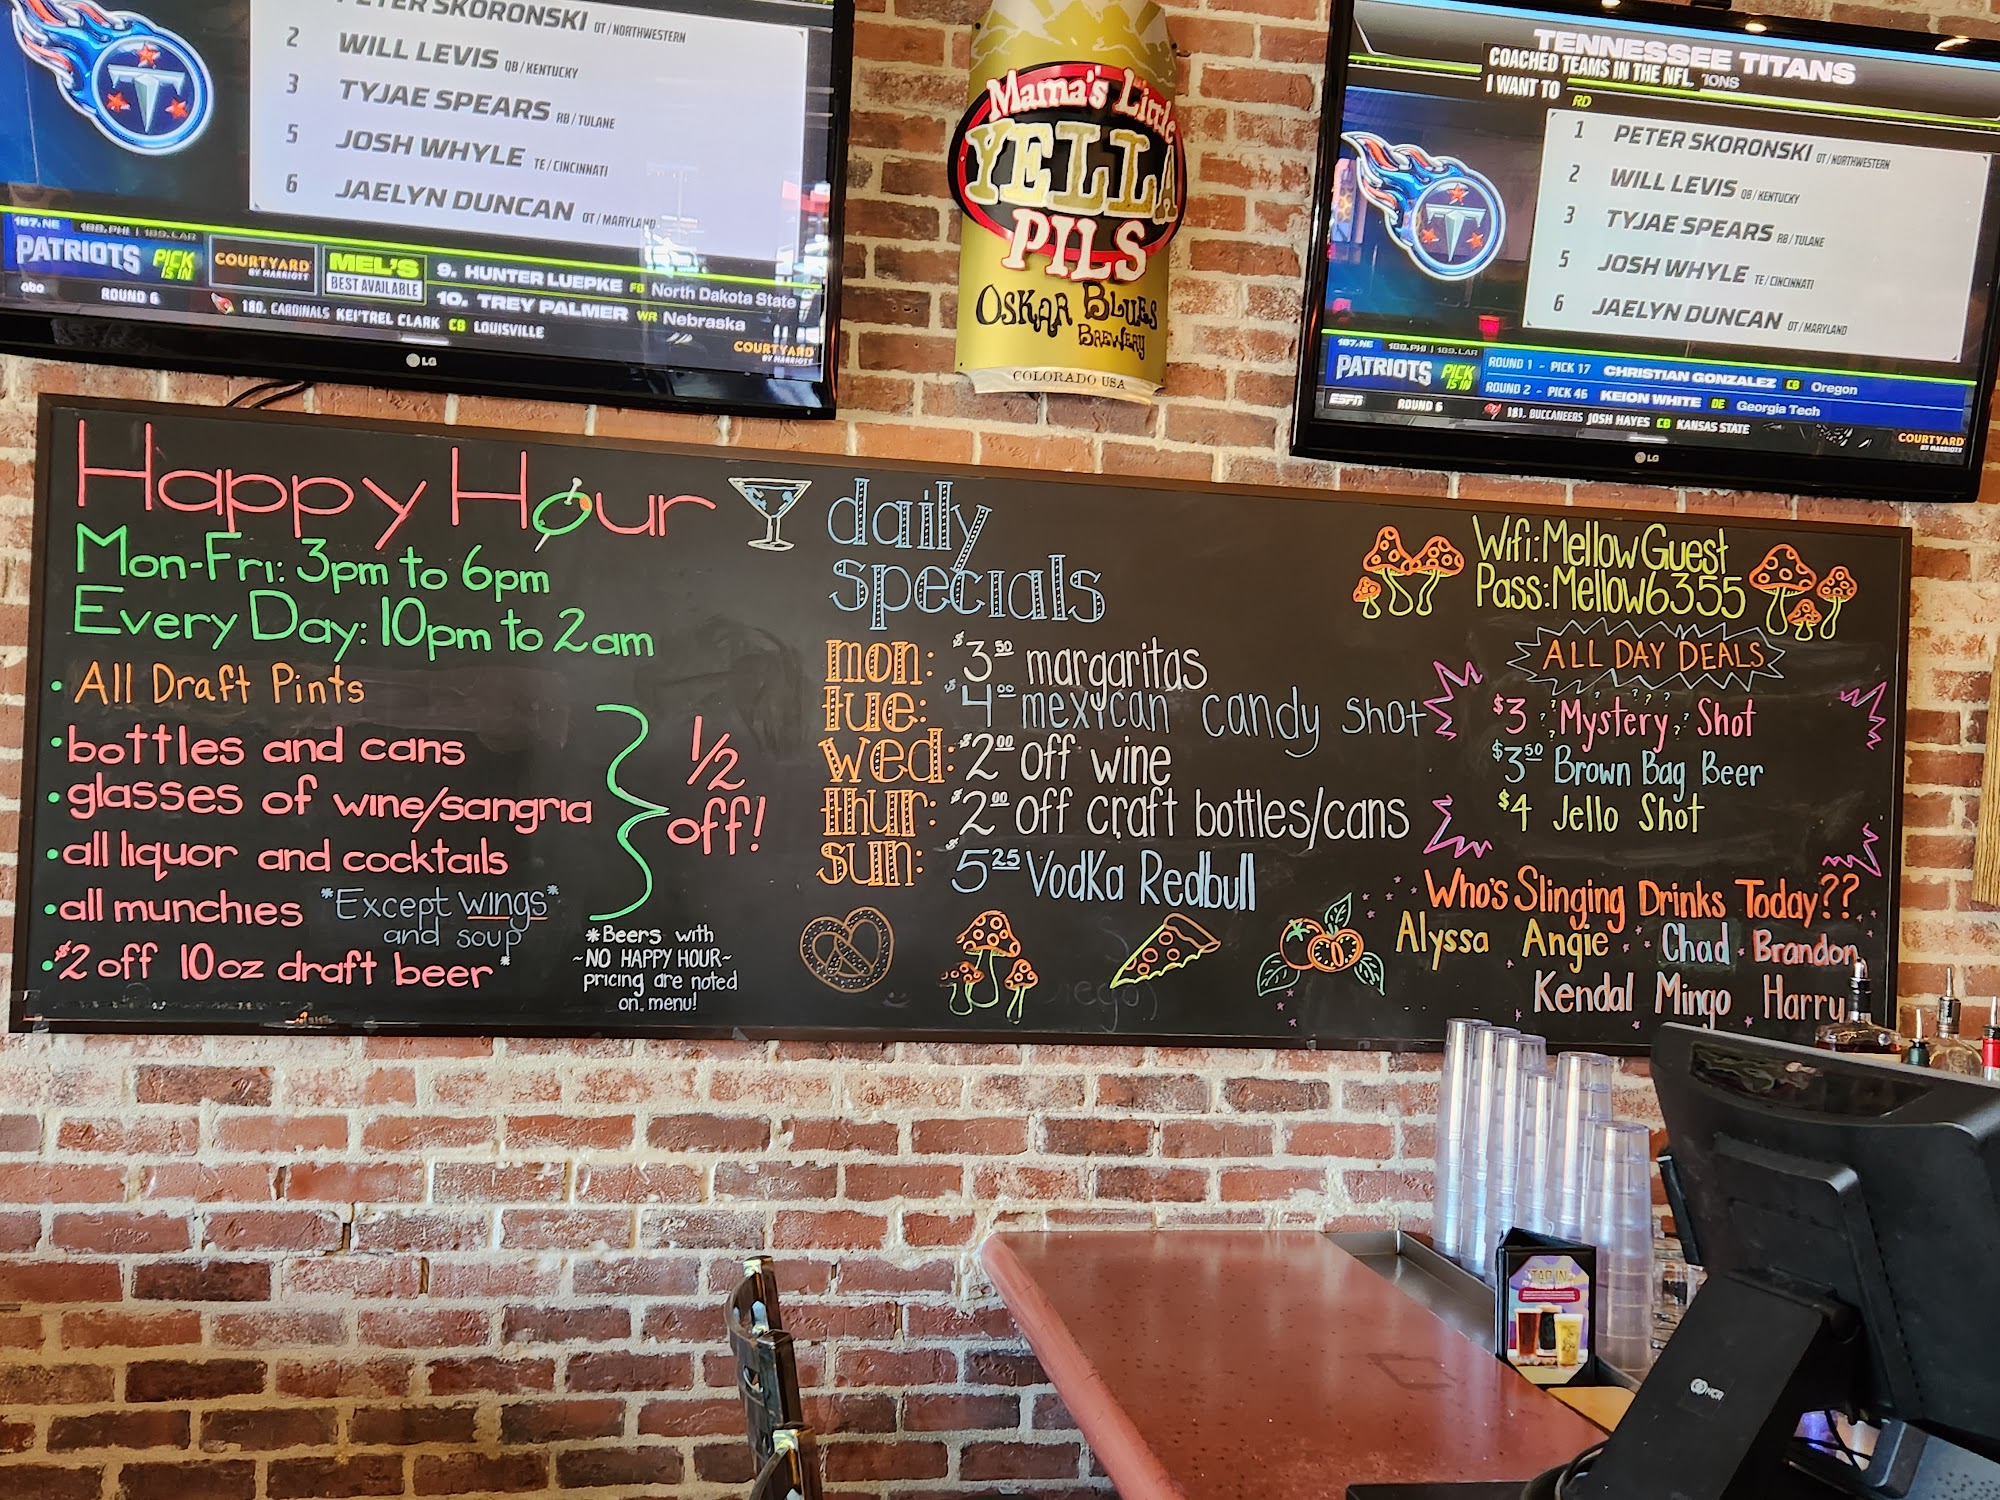 PETER SKORONSKI OT / NORTHWESTERN
2 WILL LEVIS QB / KENTUCKY
3 TYJAE SPEARS RB / TULANE
5 JOSH WHYLE TE / CINCINNATI
6 JAELYN DUNCAN OT / MARYLAND
187. NE 188. PHI | 189. LAR
PATRIOTS PICK IS IN
COURTYARD BY MARRIOTT
MEL'S BEST AVAILABLE
9. HUNTER LUEPKE FB North Dakota State
10. TREY PALMER WR Nebraska
abc ROUND 6 180. CARDINALS KEI'TREL CLARK CB LOUISVILLE
COURTYARD BY MARRIOTT
LG
Mama's Little
YELLA
PILS
OSKAR BLUES
BREWERY
COLORADO USA
TENNESSEE TITANS
COACHED TEAMS IN THE NFL.
I WANT TO
1 PETER SKORONSKI OT / NORTHWESTERN
2 WILL LEVIS QB / KENTUCKY
3 TYJAE SPEARS RB / TULANE
5 JOSH WHYLE TE / CINCINNATI
6 JAELYN DUNCAN OT / MARYLAND
187. NE 188. PHI | 189. LAR
PATRIOTS PICK IS IN
ROUND 1 - PICK 17 CHRISTIAN GONZALEZ CB Oregon
ROUND 2 - PICK 46 KEION WHITE DE Georgia Tech
ESPN ROUND 6 181. BUCCANEERS JOSH HAYES CB KANSAS STATE
COURTYARD BY MARRIOTT
LG
Happy Hour
Mon-Fri: 3pm to 6pm
Every Day: 10pm to 2am
• All Draft Pints
• bottles and cans
• glasses of wine/sangria
• all liquor and cocktails
• all munchies *Except wings*
and soup
• $2 off 10oz draft beer*
1/2
off!
*Beers with
~NO HAPPY HOUR~
pricing are noted
on menu!
daily
specials
mon: $3.50 margaritas
tue: $4.00 mexican candy shot
wed: $2.00 off wine
thur: $2.00 off craft bottles/cans
sun: $5.25 Vodka Redbull
Wifi: MellowGuest
Pass: Mellow6355
ALL DAY DEALS
$3 ? Mystery ? Shot
$3.50 Brown Bag Beer
$4 Jello Shot
Who's Slinging Drinks Today??
Alyssa Angie Chad Brandon
Kendal Mingo Harry
TAP IN
NCR